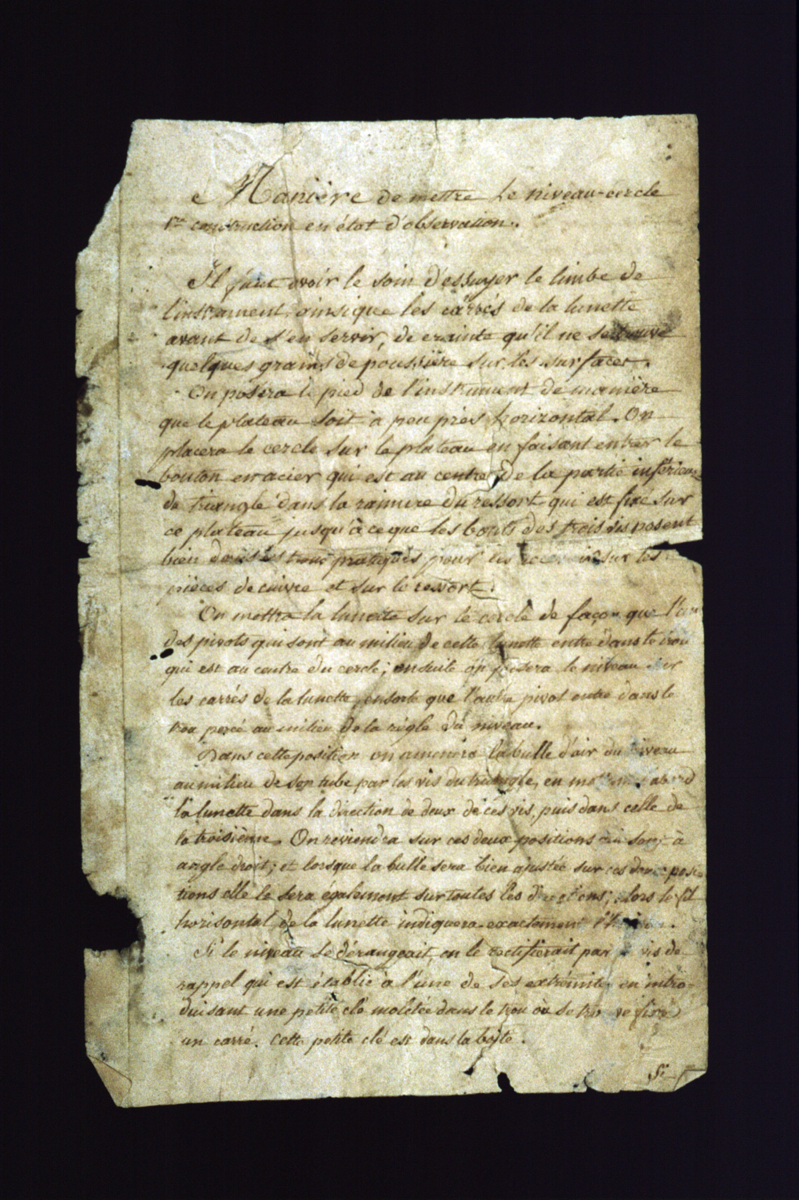 Manière de mettre le niveau-cercle
1re construction en état d'observation.
Il faut avoir le soin d'essuyer le limbe de
l'instrument, ainsique les carrés de la lunette
avant de s'en servir, de crainte qu'il ne se trouve
quelques grains de poussière sur les surfaces.
On posera le pied de l'instrument de manière
que le plateau soit à peu près horizontal. On
placera le cercle sur le plateau en faisant entrer le
bouton en acier qui est au centre de la partie inférieure
de triangle dans la rainure du ressort qui est fixé sur
ce plateau jusqu'à ce que les bouts des trois vis posent
bien dans les trous pratiqués pour les sur les
pièces de cuivre et sur le ressort.
On mettra la lunette sur le cercle de façon que l'un
des pivots qui sont au milieu de cette lunette entre dans le trou
qui est au centre du cercle; ensuite on posera le niveau sur
les carrés de la lunette, ensorte que l'autre pivot entre dans le
trou percé au milieu de la règle du niveau.
Dans cette position on amènera la bulle d'air du niveau
au milieu de son tube par les vis du triangle, en
la lunette dans la direction de deux de ces vis, puis dans celle de
la troisième. On reviendra sur ces deux positions qui sont à
angle droit; et lorsque la bulle sera bien ajustée sur ces deux posi-
tions elle le sera également sur toutes les directions; alors le fil
horisontal de la lunette indiquera exactement
Si le niveau se dérangeait, on le rectifierait par vis de
rappel qui est établie à l'une de ses extrémités en intro-
duisant une petite clé moletée dans le trou où se trouve fixé
un carré. Cette petite clé est dans la boîte.
Si